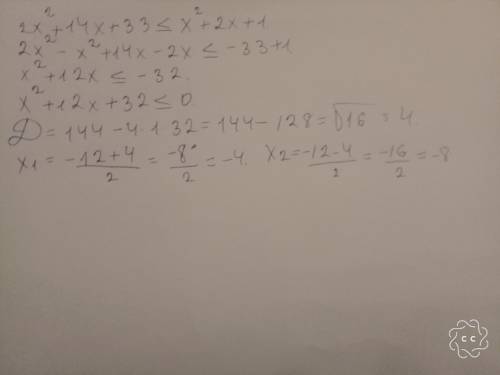 2x²+14x+33 ≤ x²+2x+1
2x²-x²+14x-2x ≤ -33+1
x²+12x ≤ -32.
x²+12x+32 ≤ 0.
D = 144-4·1·32 = 144-128 = √16 = 4.
x₁ = (-12+4)/2 = -8/2 = -4. x₂ = (-12-4)/2 = -16/2 = -8
cc